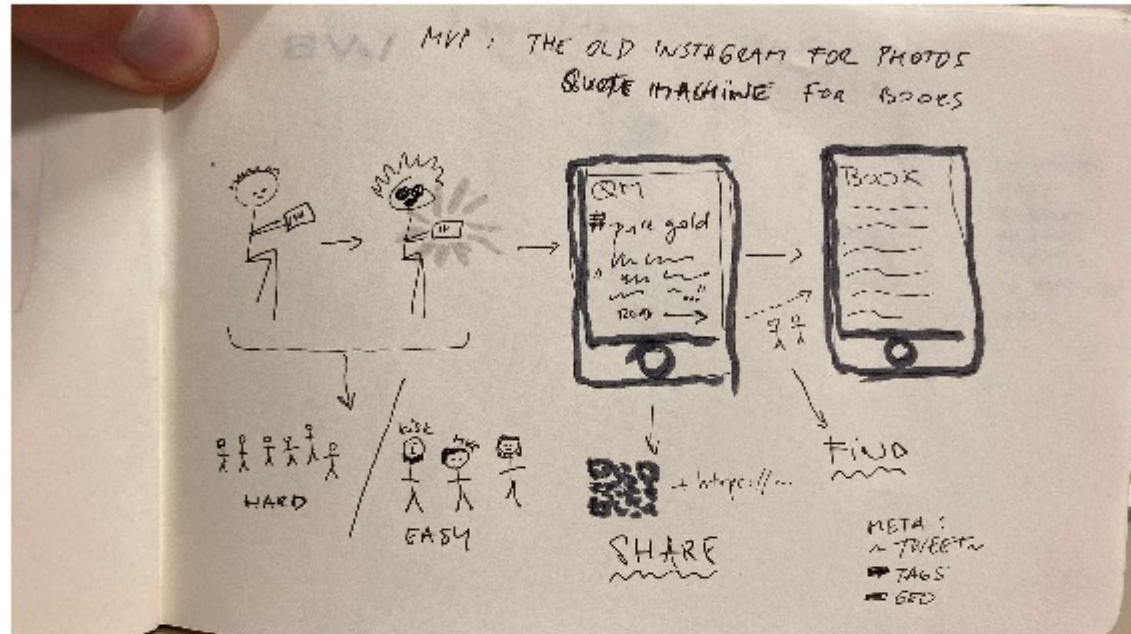 MVP : THE OLD INSTAGRAM FOR PHOTOS
QUOTE MACHINE FOR BOOKS
QM
# pure gold
READ
BOOK
HARD
EASY
+ https://...
SHARE
FIND
META :
~ TWEET ~
TAGS
GEO